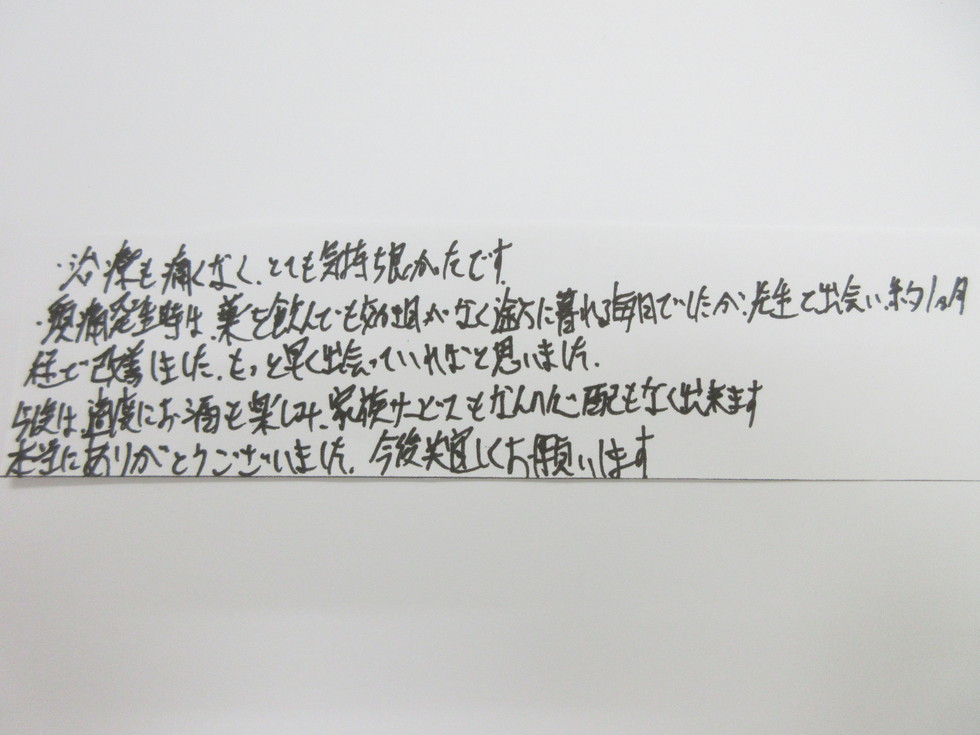 ・治療も痛くなく、とても気持ち良かったです。
・頭痛発生時は、薬を飲んでも効き目がなく途方に暮れる毎日でしたが、先生と出会い、約1ヵ月
程で改善しました。もっと早く出会っていればと思いました。
今度は、適度にお酒も楽しみ、家族サービスもなんの心配もなく出来ます
本当にありがとうございました。今後共宜しくお願いします